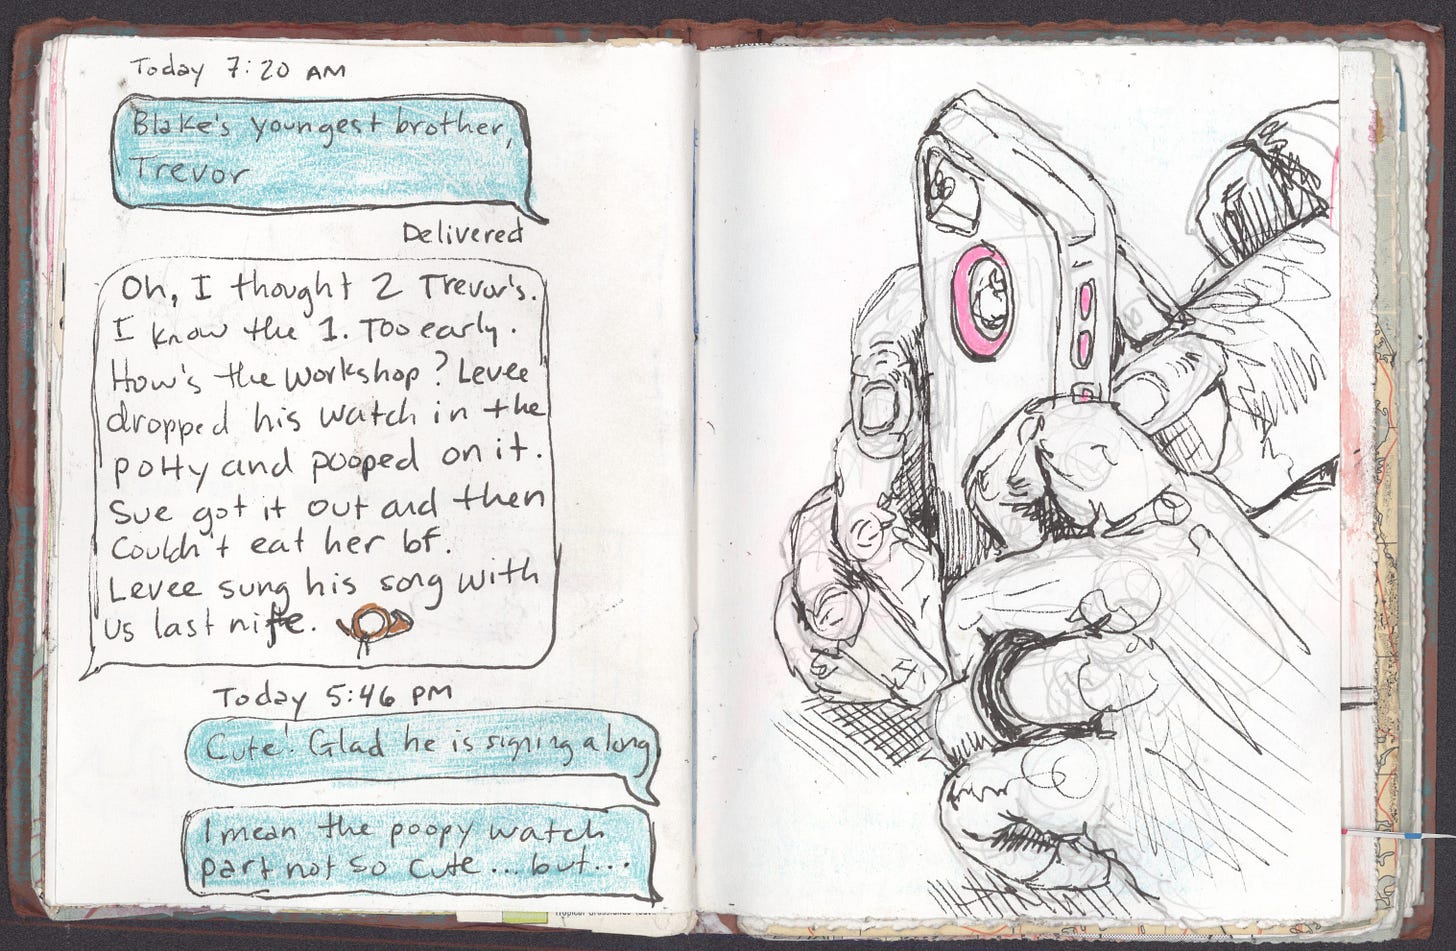 Today 7:20 AM
Blake's youngest brother,
Trevor
Delivered
Oh, I thought 2 Trevor's.
I know the 1. Too early.
How's the workshop? Levee
dropped his watch in the
potty and pooped on it.
Sue got it out and then
couldn't eat her bf.
Levee sung his song with
us last nite.
Today 5:46 PM
Cute! Glad he is signing along
I mean the poopy watch
part not so cute... but...